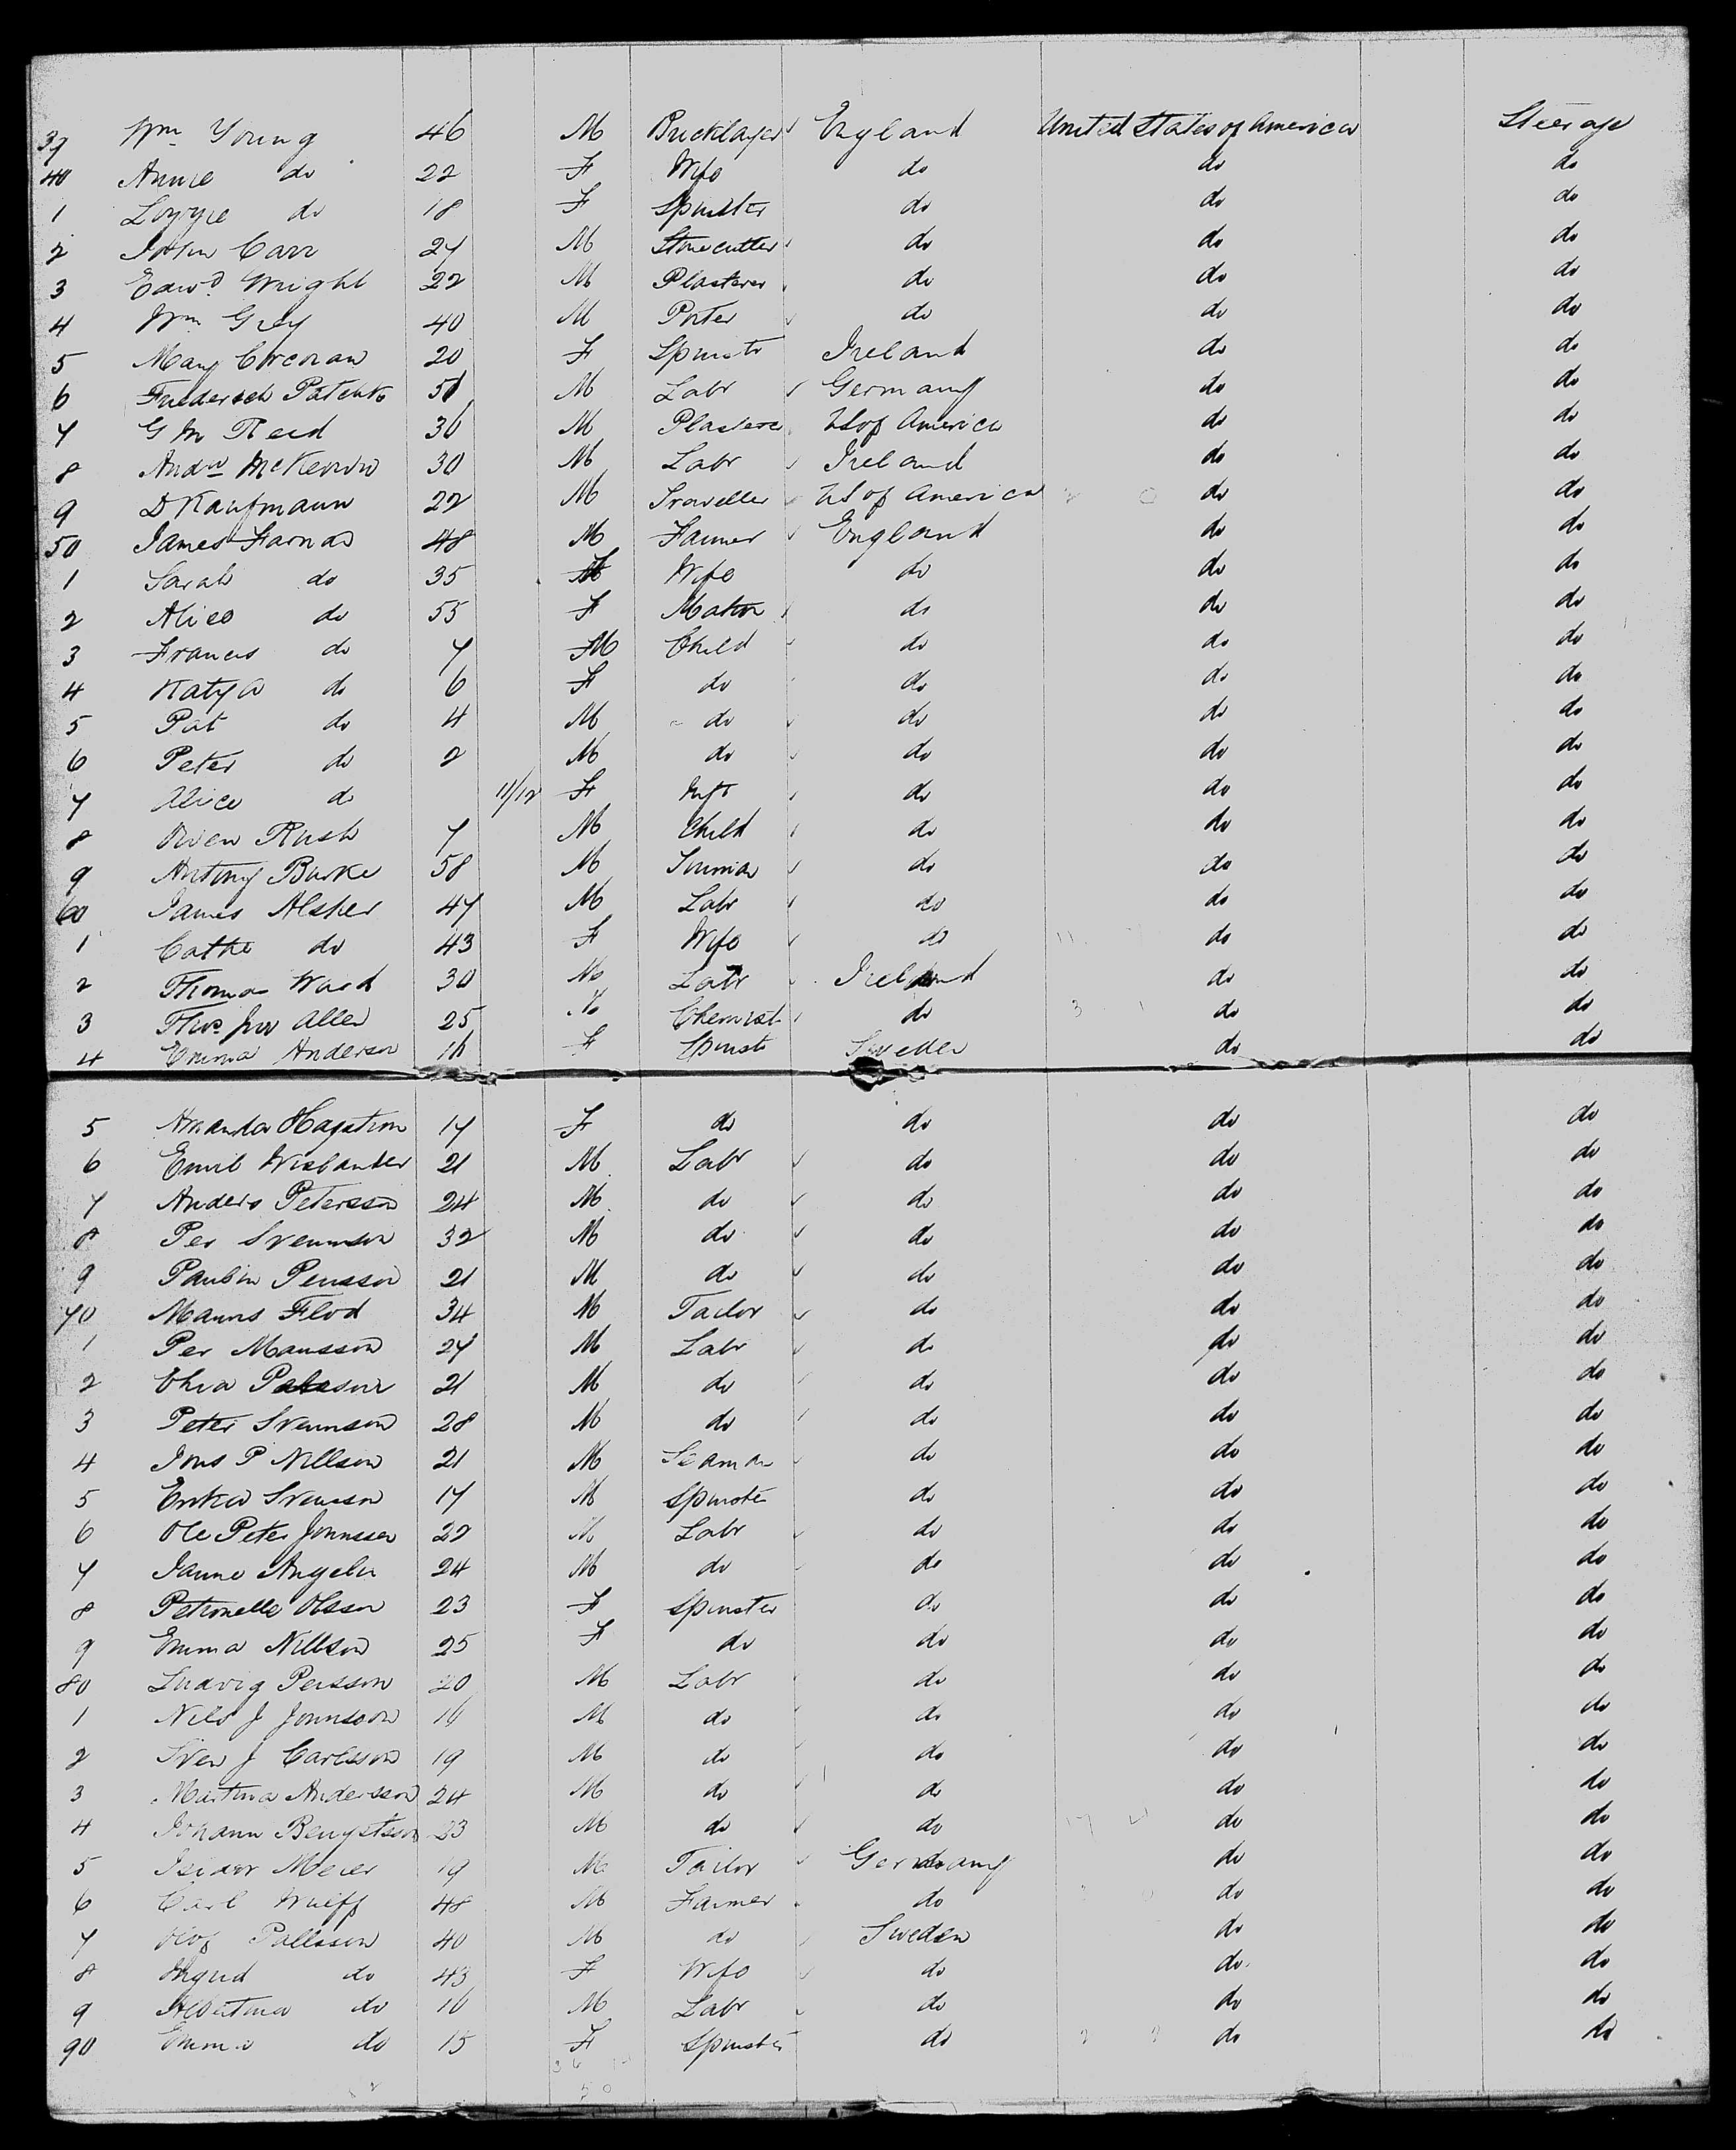 39 Wm Young 46 M Bricklayer England United States of America Steerage
40 Annie do 22 F Wife do do do
1 Lizzie do 18 F Spinster do do do
2 John Carr 27 M Stonecutter do do do
3 Edwd Wright 22 M Plasterer do do do
4 Wm Grey 40 M Porter do do do
5 Mary Corcoran 20 F Spinstr Ireland do do
6 Friederich 51 M Labr Germany do do
7 G M Reed 36 M Plasterer US of America do do
8 Andw McKeown 30 M Labr Ireland do do
9 D Kaufmann 22 M Traveller US of America do do
50 James Farnan 48 M Farmer England do do
1 Sarah do 35 F Wife do do do
2 Alice do 55 F Matrn do do do
3 Francis do 7 M Child do do do
4 Katy A do 6 F do do do do
5 Pat do 4 M do do do do
6 Peter do 2 M do do do do
7 Alice do 11/12 F Inft do do do
8 Owen Rush 7 M Child do do do
9 Antony Burke 58 M do do do
60 James Alsher 47 M Labr do do do
1 Cathe do 43 F Wife do do do
2 Thomas Ward 30 M Labr Ireland do do
3 Thos Jno Allen 25 M Chemist do do do
4 Emma Anderson 16 F Spinstr Sweden do do
5 Amanda Hagstrom 17 F do do do do
6 Emil Wislander 21 M Labr do do do
7 Anders Petersson 24 M do do do do
8 Per Svennson 32 M do do do do
9 Paulin Persson 21 M do do do do
70 Mauns Flod 34 M Tailor do do do
1 Per Mansson 27 M Labr do do do
2 21 M do do do do
3 Peter Svennson 28 M do do do do
4 Jons P Nillson 21 M Seaman do do do
5 Erika Svensson 17 M Spinster do do do
6 Ole Peter Jonnssen 22 M Labr do do do
7 Janne Angelin 24 M do do do do
8 Petronelle Olsson 23 F Spinster do do do
9 Emma Nillson 25 F do do do do
80 Ludvig Persson 20 M Labr do do do
1 Nils J Jonnsson 16 M do do do do
2 Sven J Carlsson 19 M do do do do
3 Martina Andersson 24 M do do do do
4 Johann Bengtsson 23 M do do do do
5 Isidor Meier 19 M Tailor Germany do do
6 Carl Wulff 48 M Farmer do do do
7 Olof Pallsson 40 M do Sweden do do
8 Ingrid do 43 F Wife do do do
9 Albertina do 16 M Labr do do do
90 Emma do 15 F Spinster do do do